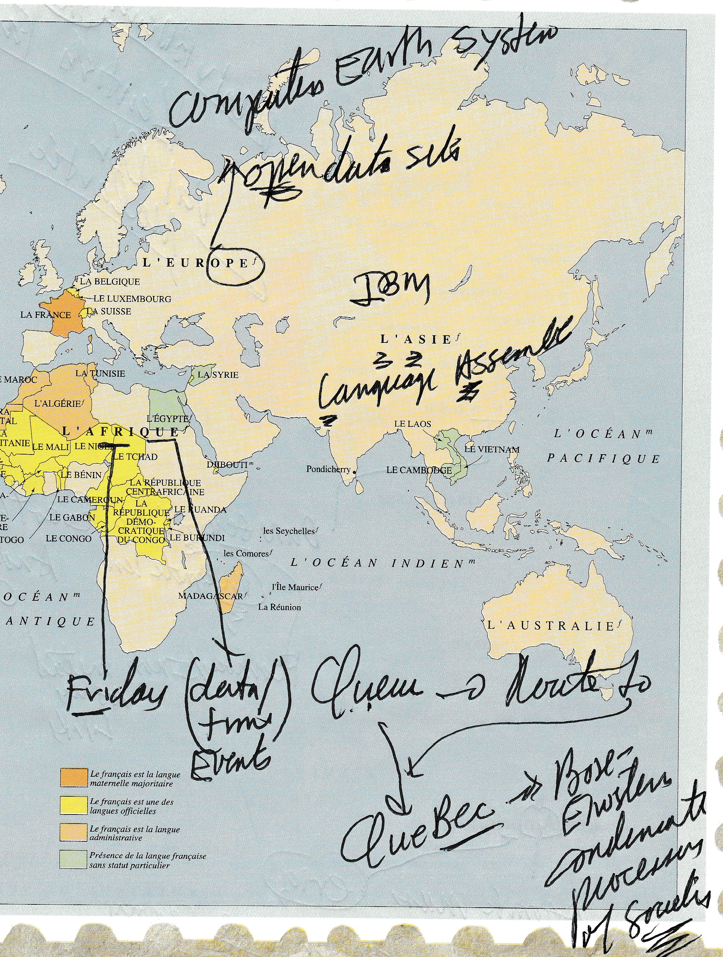 Computers Earth System
open data sets
L'EUROPE f
LA BELGIQUE
LE LUXEMBOURG
LA FRANCE
LA SUISSE
IBM
L'ASIE f
Language Assemble
LE MAROC
LA TUNISIE
LA SYRIE
L'ALGÉRIE f
L'ÉGYPTE f
L'AFRIQUE
LE LAOS
L'OCÉAN m
PACIFIQUE
ITANIE
LE MALI
LE NIGER
LE TCHAD
DJIBOUTI m
Pondicherry
LE CAMBODGE
LE VIETNAM
LE BÉNIN
LA RÉPUBLIQUE
CENTRAFRICAINE
LE CAMEROUN
LA
RÉPUBLIQUE
DÉMO-
CRATIQUE
DU CONGO
LE RUANDA
LE GABON
TOGO
LE CONGO
LE BURUNDI
les Seychelles f
les Comores f
L'OCÉAN INDIEN m
MADAGASCAR f
l'Île Maurice f
La Réunion
OCÉAN m
ANTIQUE
L'AUSTRALIE f
Friday (data/
time)
Events
Queue → Route to
QueBec → Bose-
Einstein
condensate
processes
of
Le français est la langue
maternelle majoritaire
Le français est une des
langues officielles
Le français est la langue
administrative
Présence de la langue française
sans statut particulier